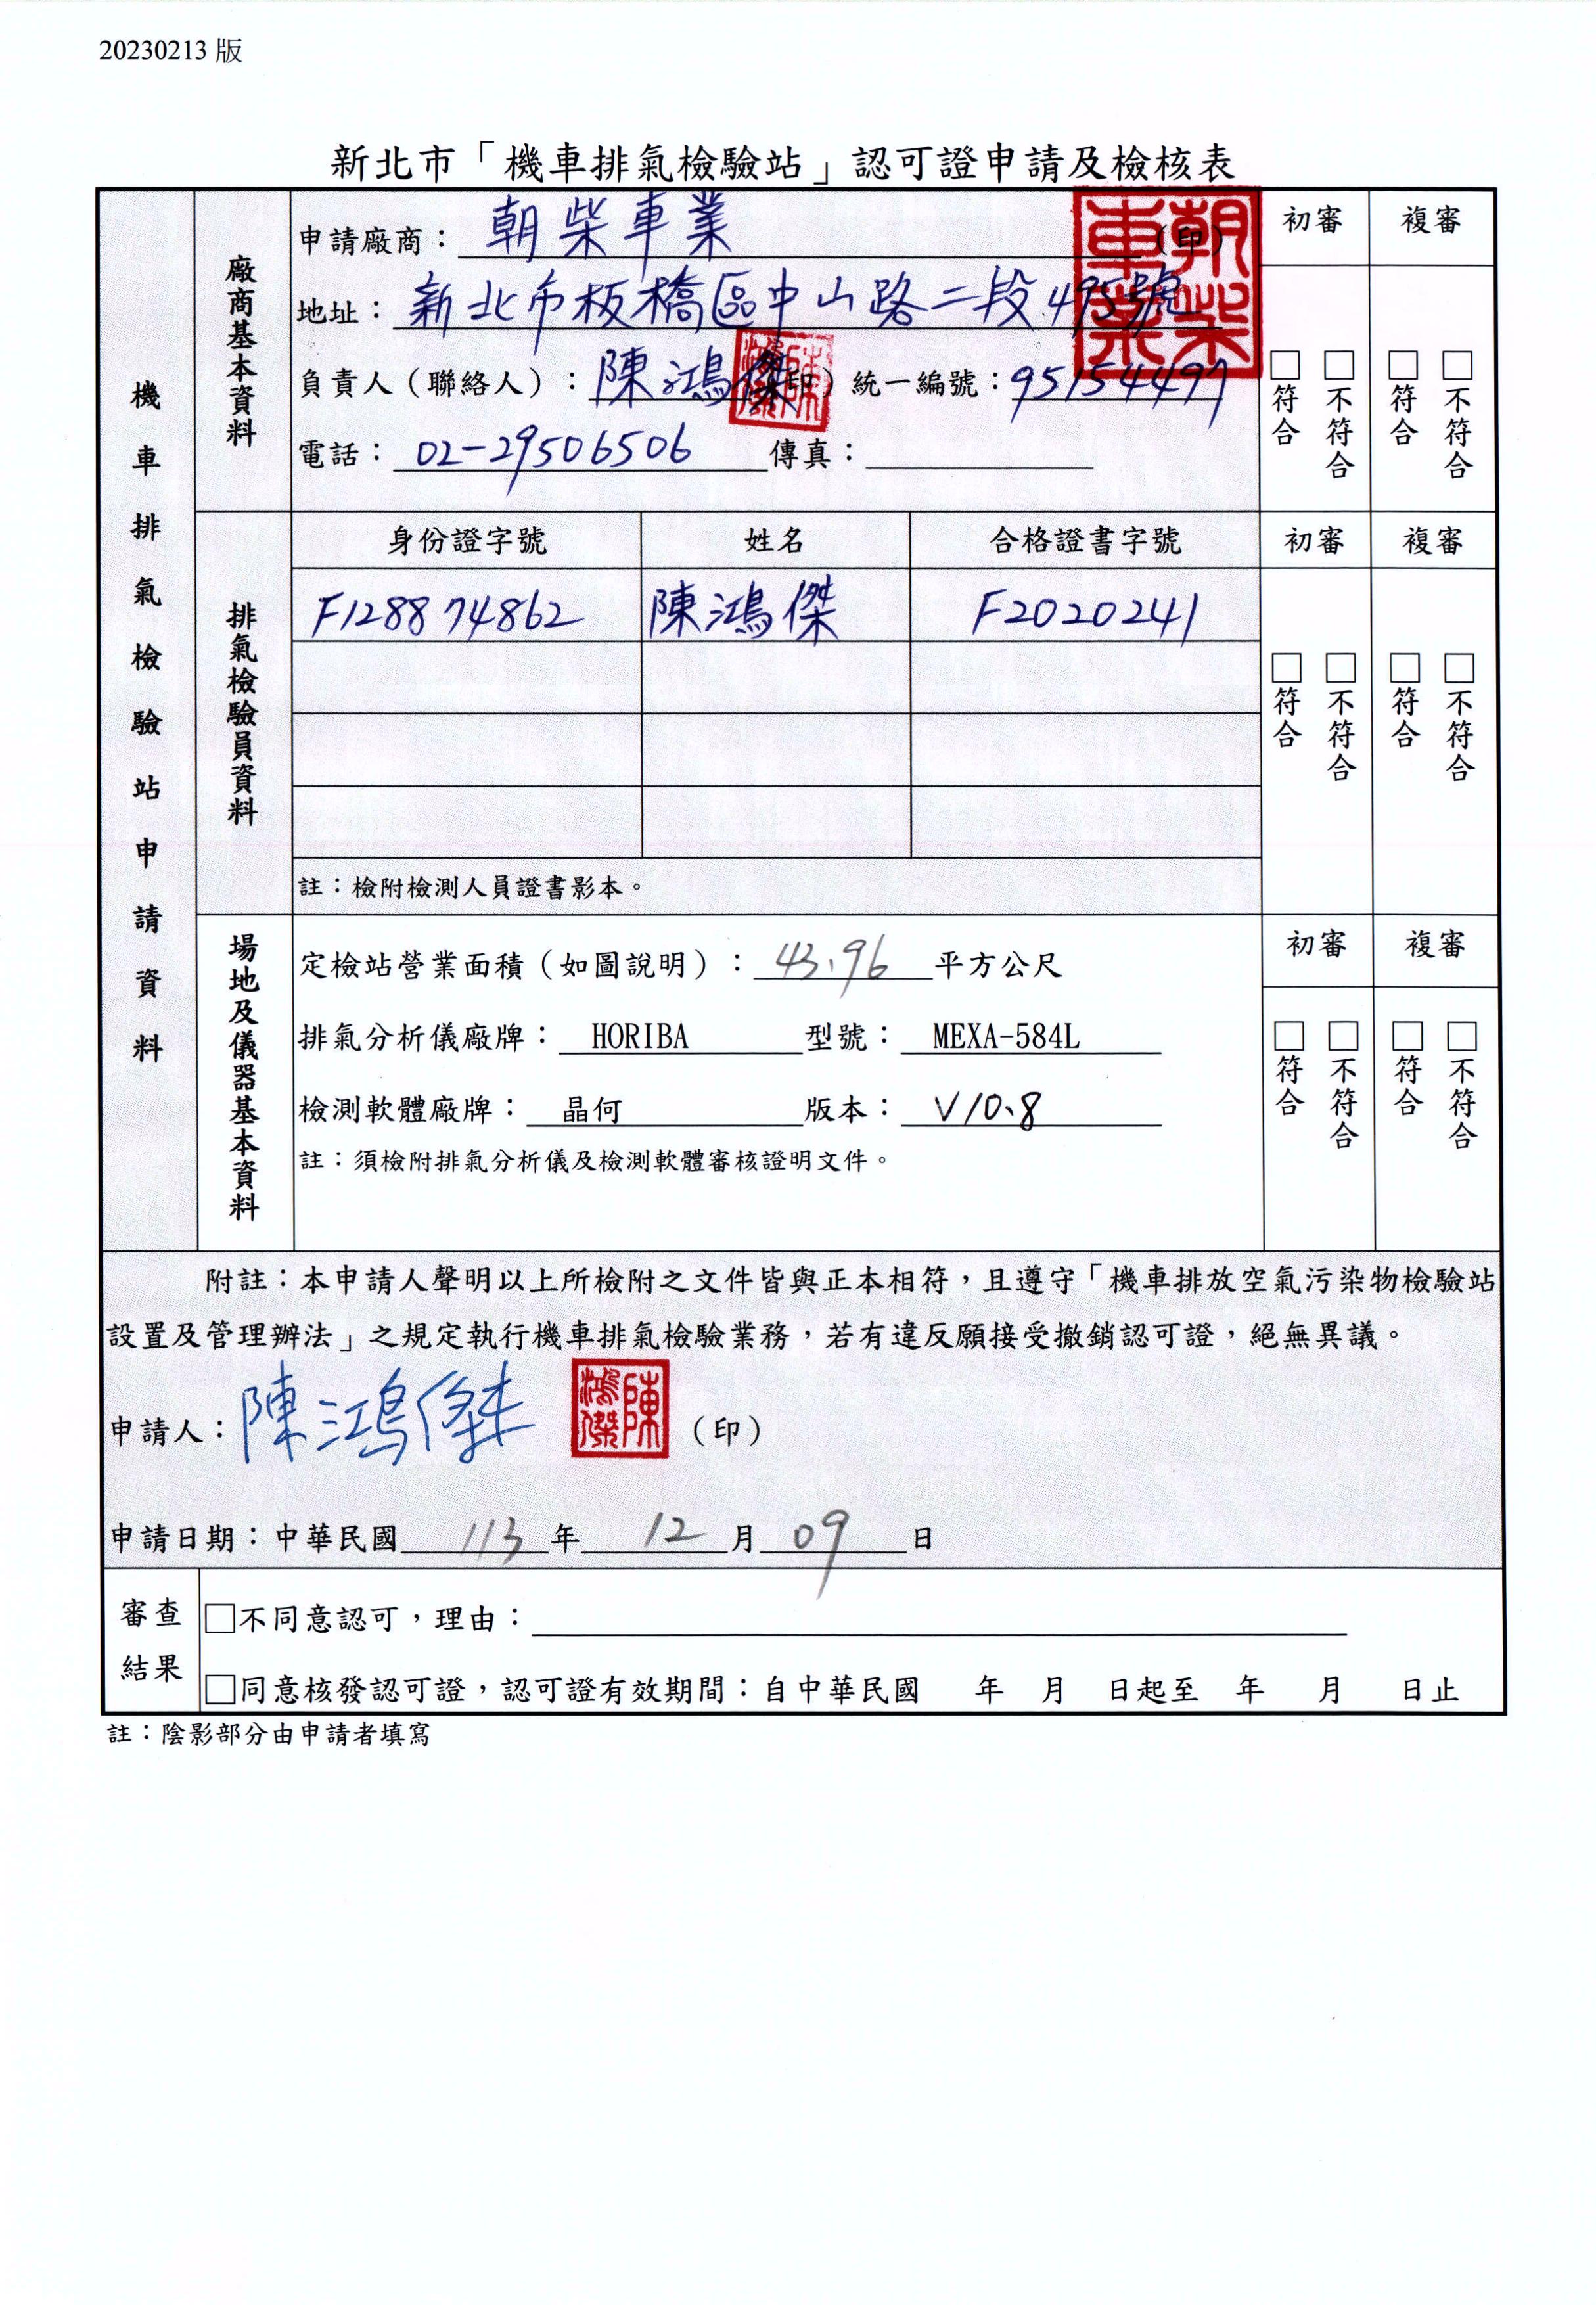 20230213 版
新北市「機車排氣檢驗站」認可證申請及檢核表
機車排氣檢驗站申請資料
廠商基本資料
申請廠商：朝柴車業（印）
朝柴車業
初審 複審
地址：新北市板橋區中山路二段495號
負責人（聯絡人）：陳鴻傑（印）統一編號：95154497
陳鴻傑
電話：02-29506506 傳真：
□符合 □不符合 □符合 □不符合
排氣檢驗員資料
身份證字號 姓名 合格證書字號 初審 複審
F128874862 陳鴻傑 F2020241
□符合 □不符合 □符合 □不符合
註：檢附檢測人員證書影本。
場地及儀器基本資料
初審 複審
定檢站營業面積（如圖說明）：43.96 平方公尺
排氣分析儀廠牌：HORIBA 型號：MEXA-584L
檢測軟體廠牌：晶何 版本：V10.8
註：須檢附排氣分析儀及檢測軟體審核證明文件。
□符合 □不符合 □符合 □不符合
附註：本申請人聲明以上所檢附之文件皆與正本相符，且遵守「機車排放空氣污染物檢驗站
設置及管理辦法」之規定執行機車排氣檢驗業務，若有違反願接受撤銷認可證，絕無異議。
申請人：陳鴻傑 （印）
陳鴻傑
申請日期：中華民國 113 年 12 月 09 日
審查結果
□不同意認可，理由：
□同意核發認可證，認可證有效期間：自中華民國 年 月 日起至 年 月 日止
註：陰影部分由申請者填寫